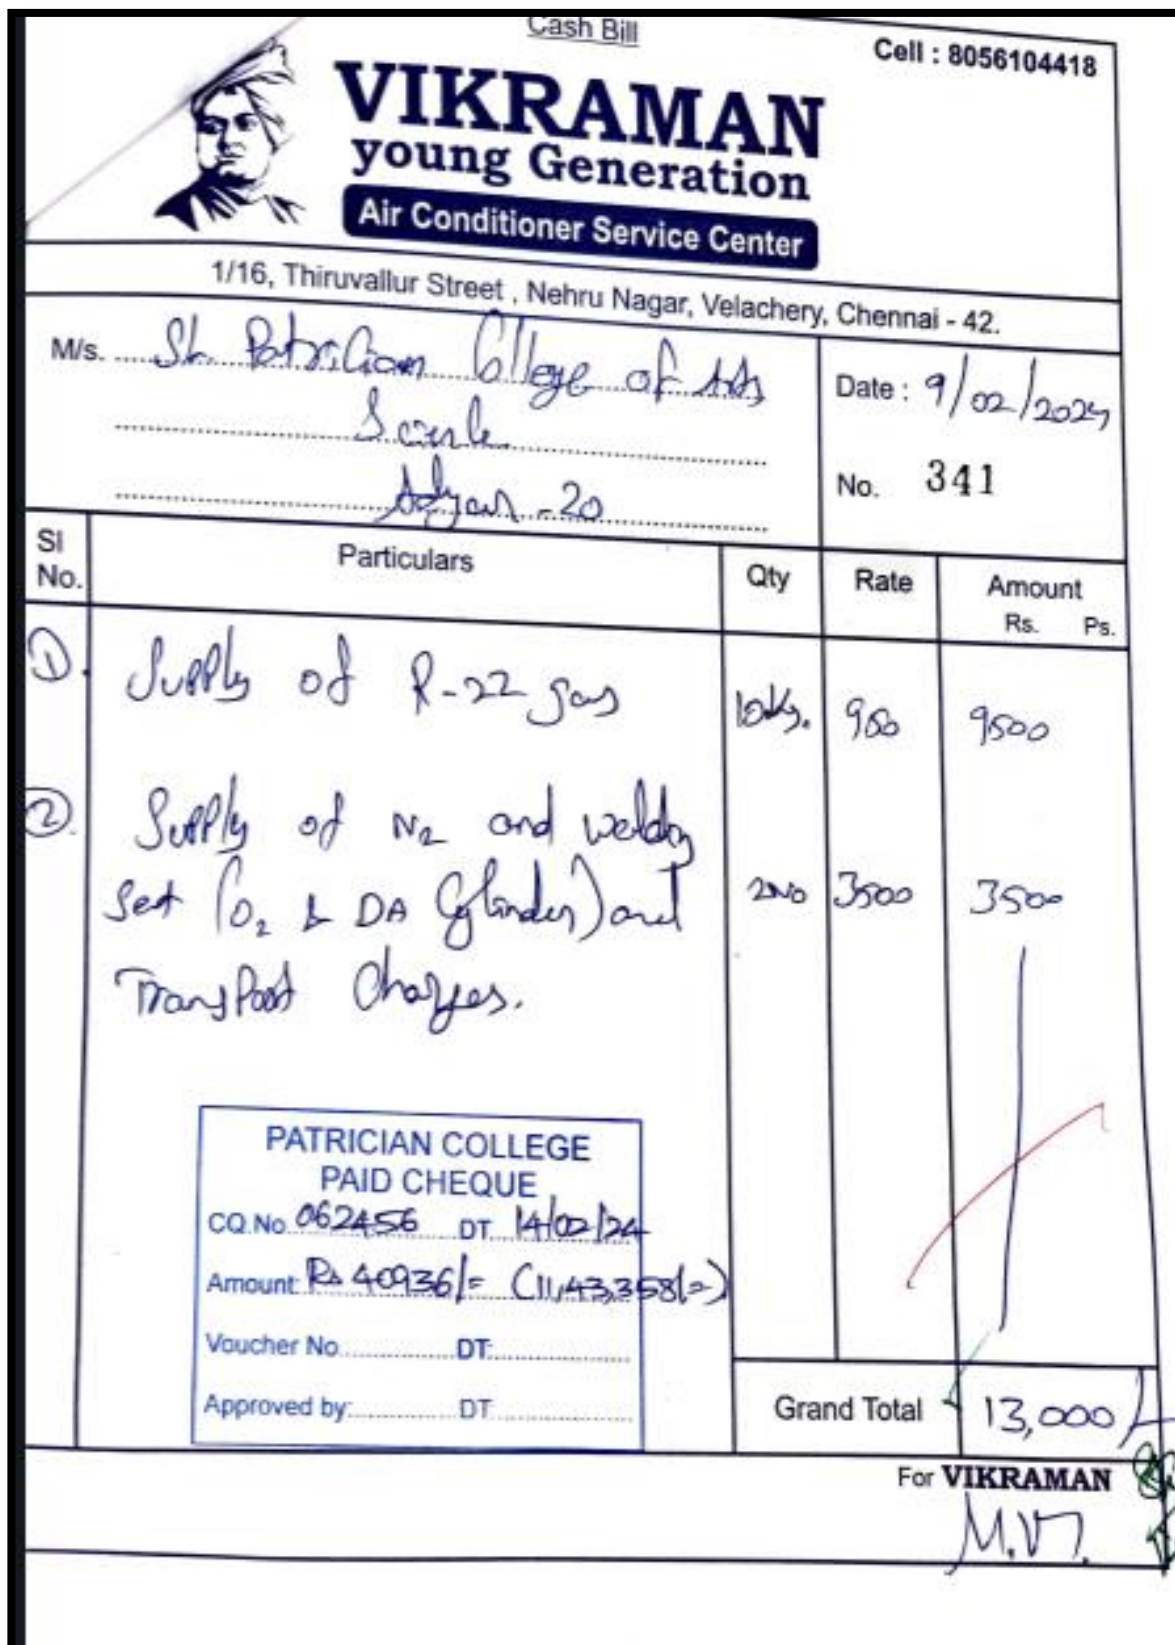 Cash Bill
Cell : 8056104418
VIKRAMAN
young Generation
Air Conditioner Service Center
1/16, Thiruvallur Street , Nehru Nagar, Velachery, Chennai - 42.
M/s. St. Patrician College of Arts
Science
Adyar - 20
Date : 9/02/2024
No. 341
Sl No. Particulars Qty Rate Amount
Rs. Ps.
1). Supply of R-22 gas 10kg. 950 9500
2). Supply of N2 and welding
set (O2 & DA Cylinder) and 2No 3500 3500
Transport Charges.
PATRICIAN COLLEGE
PAID CHEQUE
CQ.No. 062456 DT. 14/02/24
Amount: Rs 40936/= (11,43,358/=)
Voucher No. DT:
Approved by: DT
Grand Total 13,000/-
For VIKRAMAN